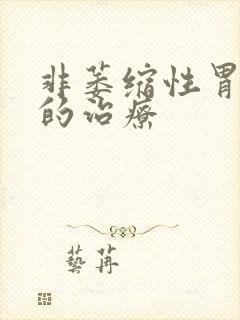 非萎缩性胃
的治疗
藝苒